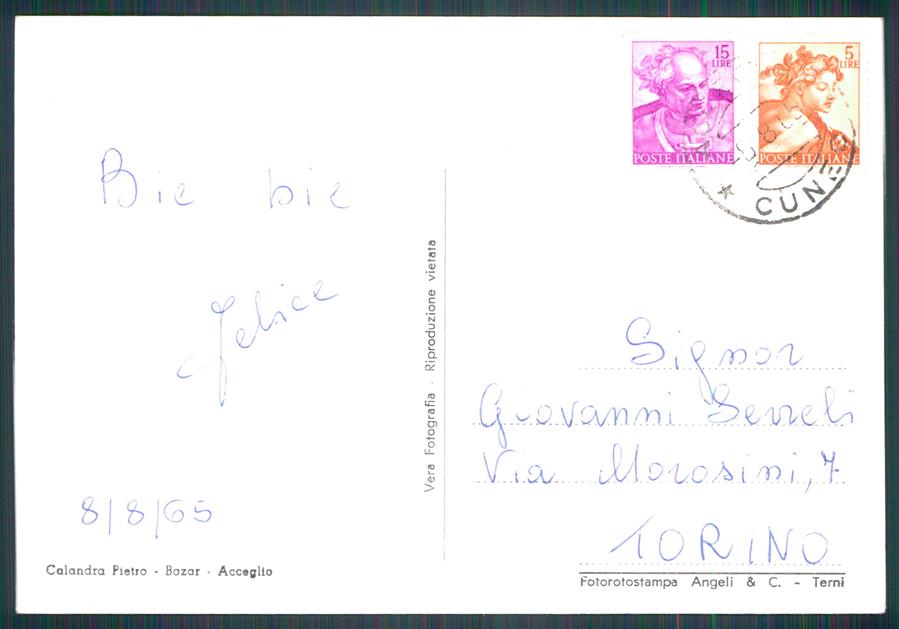 15
LIRE
POSTE ITALIANE
5
LIRE
POSTE ITALIANE
CUNEO
Bie bie
Felice
8/8/65
Calandra Pietro - Bazar - Acceglio
Vera Fotografia - Riproduzione vietata
Signor
Giovanni Serreli
Via Morosini, 7
TORINO
Fotorotostampa Angeli & C. - Terni